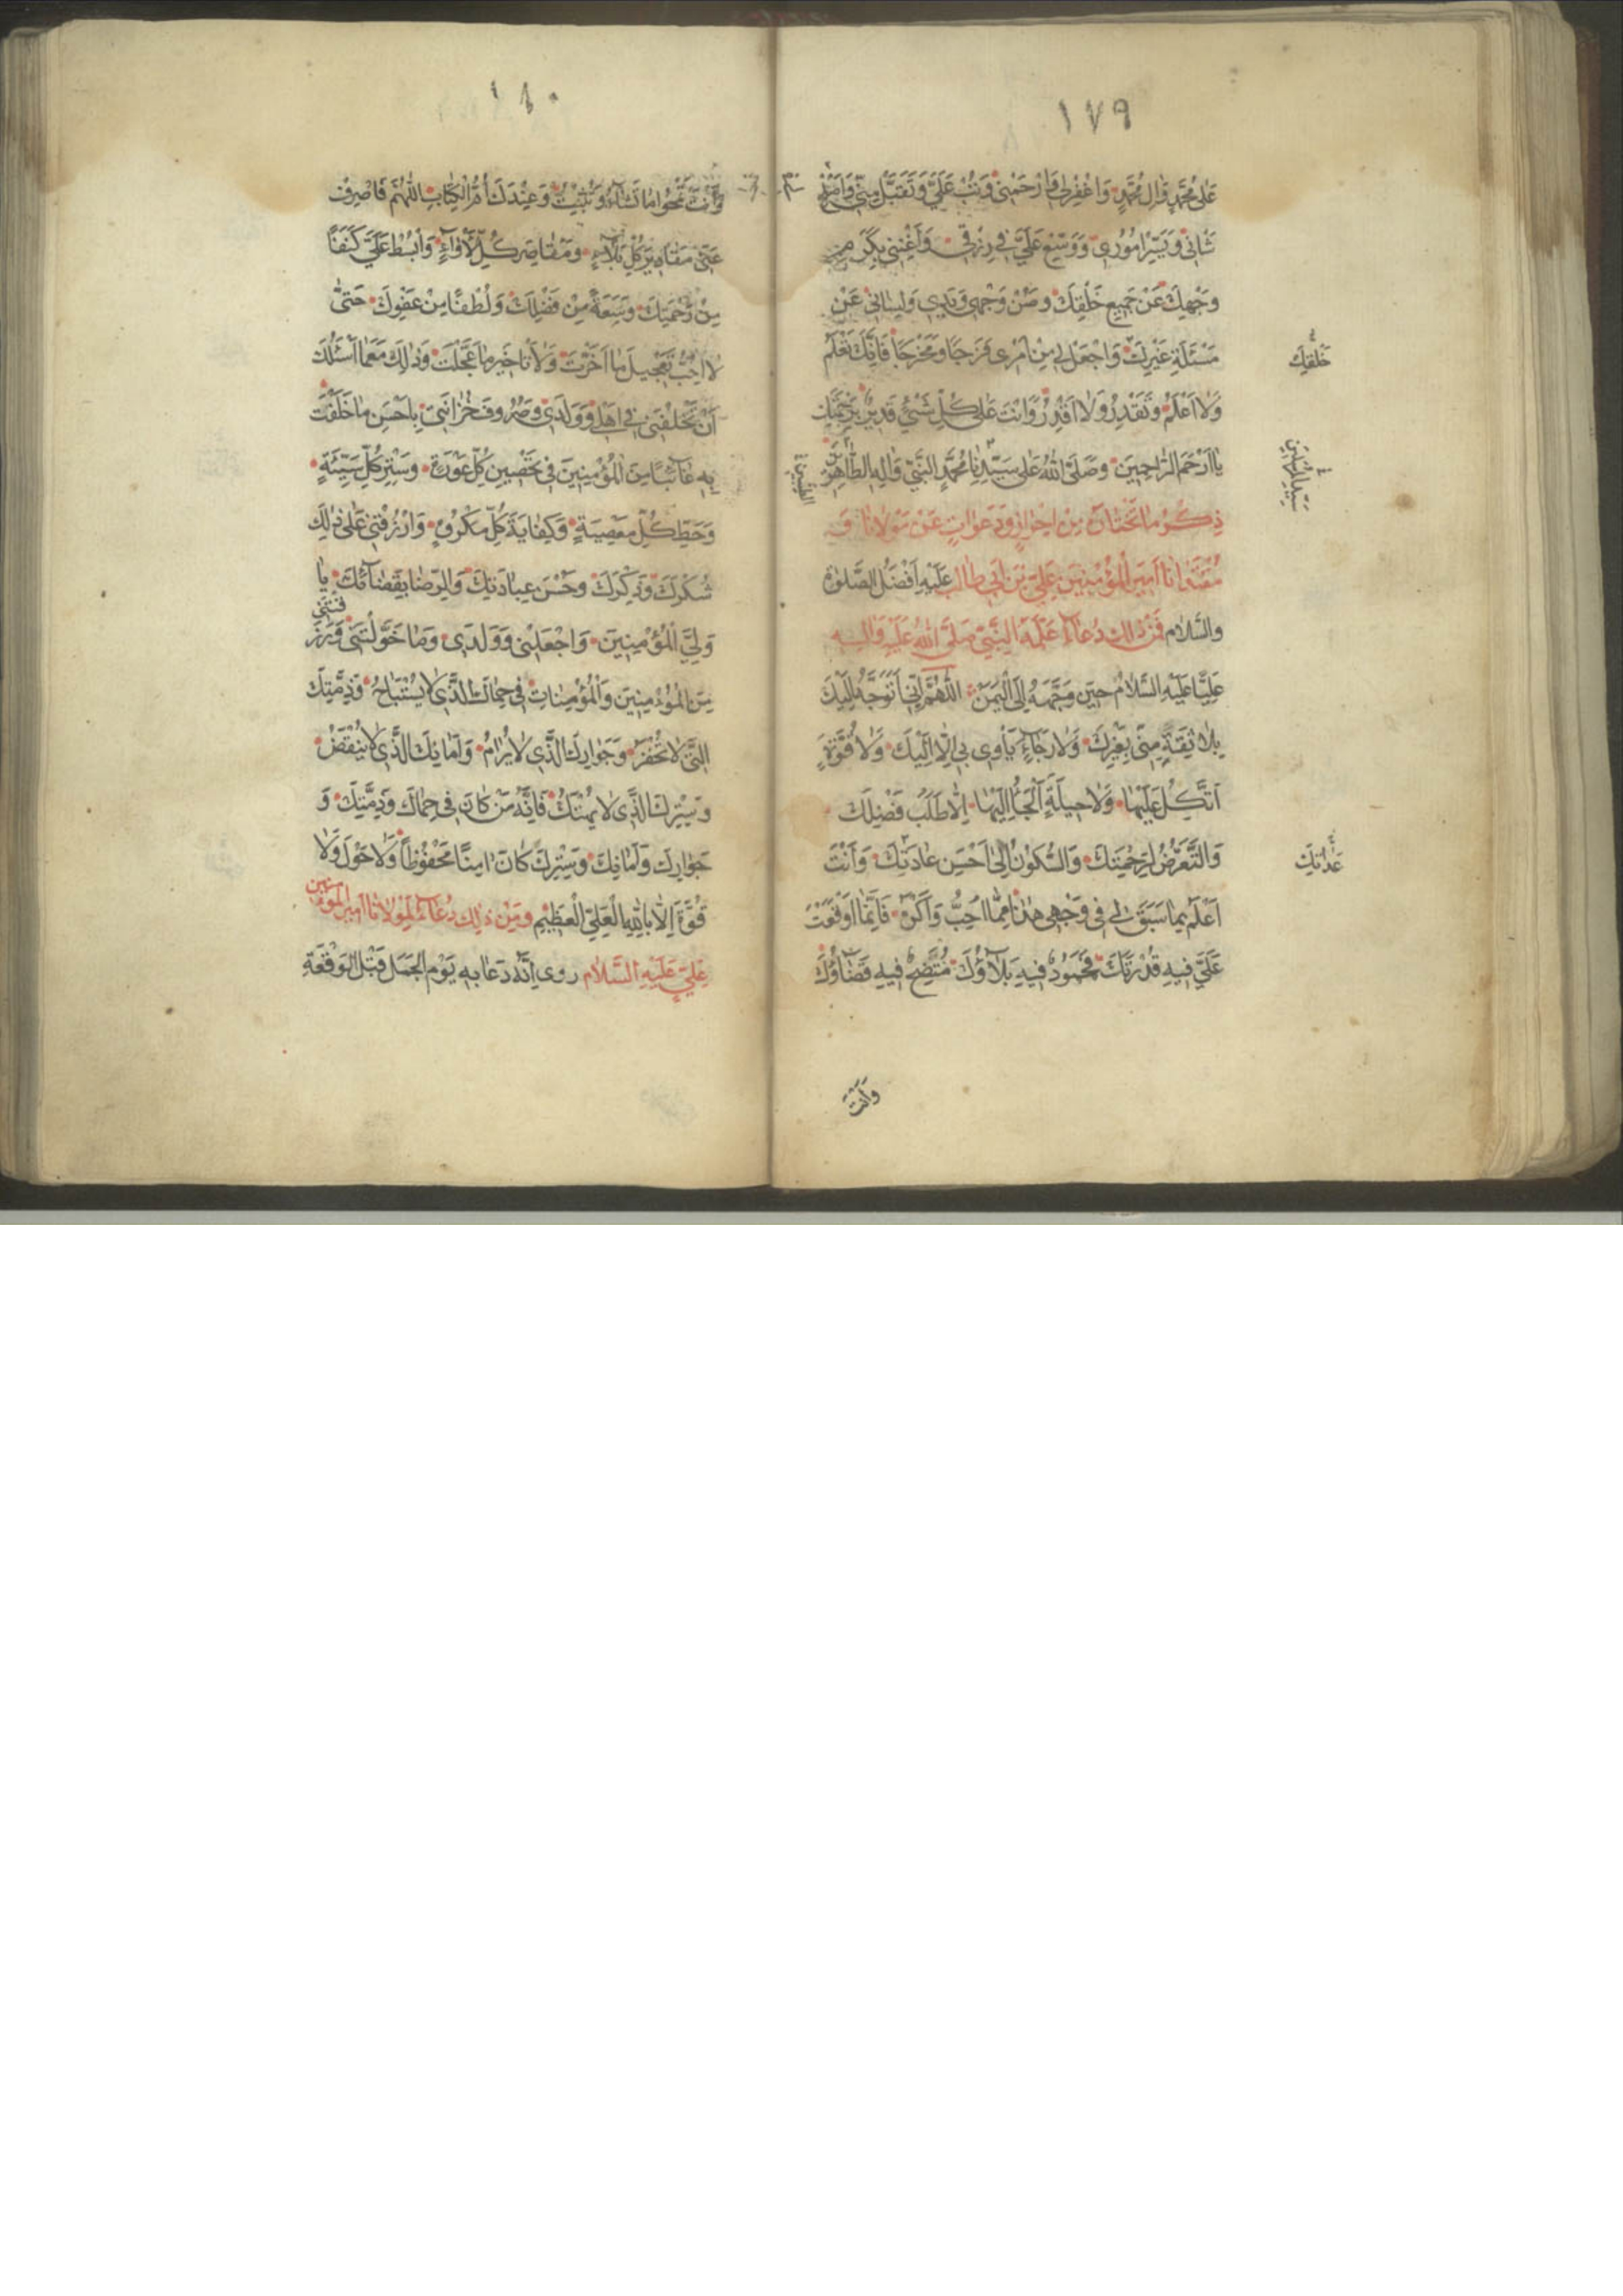 ١٧٩
عَلى مُحَمَّدٍ وَالِ مُحَمَّدٍ وَاغْفِرْلى وَارْحَمْنى وَتُبْ عَلَيَّ وَتَقَبَّلْ مِنّى وَاَصْلِحْ
شَانى وَيَسِّرْ اُمُورى وَوَسِّعْ عَلَيَّ فى رِزْقى وَاَغْنِنى بِكَرَمِ
وَجْهِكَ عَنْ جَميعِ خَلْقِكَ وَصُنْ وَجْهى وَيَدى وَلِسانى عَنْ
مَسْئَلَةِ غَيْرِكَ وَاجْعَلْ لى مِنْ اَمْرى فَرَجًا وَمَخْرَجًا فَاِنَّكَ تَعْلَمُ
خَلْقِكَ
وَلا اَعْلَمُ وَتَقْدِرُ وَلا اَقْدِرُ وَاَنْتَ عَلى كُلِّ شَىْءٍ قَديرٌ بِرَحْمَتِكَ
يا اَرْحَمَ الرّاحِمينَ وَصَلَّى اللهُ عَلى سَيِّدِنا مُحَمَّدٍ النَّبِيِّ وَالِهِ الطّاهِرينَ
الطَّيِّبينَ
سَيِّدِ الْمُرْسَلينَ
ذِكْرُ ما نَخْتارُ مِنْ اَحْرازٍ وَدَعَواتٍ عَنْ مَوْلانا وَ
مُقْتَدانا اَميرِ الْمُؤْمِنينَ عَلِيِّ بْنِ اَبى طالِبٍ عَلَيْهِ اَفْضَلُ الصَّلوةِ
وَالسَّلامِ فَمِنْ ذلِكَ دُعاءٌ عَلَّمَهُ النَّبِيُّ صَلَّى اللهُ عَلَيْهِ وَالِهِ
عَلِيًّا عَلَيْهِ السَّلامُ حينَ وَجَّهَهُ اِلَى الْيَمَنِ اَللّهُمَّ اِنّى اَتَوَجَّهُ اِلَيْكَ
بِلا ثِقَةٍ مِنّى بِغَيْرِكَ وَلا رَجاءٍ يَاْوى بى اِلّا اِلَيْكَ وَلا قُوَّةٍ
اَتَّكِلُ عَلَيْها وَلا حيلَةٍ اَلْجَاُ اِلَيْها اِلّا طَلَبَ فَضْلِكَ
وَالتَّعَرُّضَ لِرَحْمَتِكَ وَالسُّكُونَ اِلى اَحْسَنِ عادَتِكَ وَاَنْتَ
عَداتِكَ
اَعْلَمُ بِما سَبَقَ لى فى وَجْهى هذا مِمّا اُحِبُّ وَاَكْرَهُ فَاَيَّما اَوْقَعْتَ
عَلَيَّ فيهِ قُدْرَتَكَ فَمَحْمُودٌ فيهِ بَلاؤُكَ مُتَّضِحٌ فيهِ قَضاؤُكَ
وَاَنْتَ
١٨٠
وَاَنْتَ تَمْحُوا ما تَشاءُ وَتُثْبِتُ وَعِنْدَكَ اُمُّ الْكِتابِ اَللّهُمَّ فَاصْرِفْ
عَنّى مَقاديرَ كُلِّ بَلاءٍ وَمَقاصِرَ كُلِّ لَاْواءٍ وَابْسُطْ عَلَيَّ كَنَفًا
مِنْ رَحْمَتِكَ وَسَعَةً مِنْ فَضْلِكَ وَلُطْفًا مِنْ عَفْوِكَ حَتّى
لا اُحِبَّ تَعْجيلَ ما اَخَّرْتَ وَلا تَاْخيرَ ما عَجَّلْتَ وَذلِكَ مَعَ ما اَسْئَلُكَ
اَنْ تَخْلُفَنى فى اَهْلى وَوَلَدى وَصُرُوفِ حُزانَتى بِاَحْسَنِ ما خَلَفْتَ
بِهِ غائِبًا مِنَ الْمُؤْمِنينَ فى تَحْصينِ كُلِّ عَوْرَةٍ وَسَتْرِ كُلِّ سَيِّئَةٍ
وَحَطِّ كُلِّ مَعْصِيَةٍ وَكِفايَةِ كُلِّ مَكْرُوهٍ وَارْزُقْنى عَلى ذلِكَ
شُكْرَكَ وَذِكْرَكَ وَحُسْنَ عِبادَتِكَ وَالرِّضا بِقَضائِكَ يا
وَلِيَّ الْمُؤْمِنينَ وَاجْعَلْنى وَوَلَدى وَما خَوَّلْتَنى وَرَزَقْتَنى
مِنَ الْمُؤْمِنينَ وَالْمُؤْمِناتِ فى حِماكَ الَّذى لا يُسْتَباحُ وَذِمَّتِكَ
الَّتى لا تُخْفَرُ وَجِوارِكَ الَّذى لا يُرامُ وَاَمانِكَ الَّذى لا يُنْقَضُ
وَسِتْرِكَ الَّذى لا يُهْتَكُ فَاِنَّهُ مَنْ كانَ فى حِماكَ وَذِمَّتِكَ وَ
جِوارِكَ وَاَمانِكَ وَسِتْرِكَ كانَ امِنًا مَحْفُوظًا وَلا حَوْلَ وَلا
قُوَّةَ اِلّا بِاللهِ الْعَلِيِّ الْعَظيمِ وَمِنْ ذلِكَ دُعاءٌ لِمَوْلانا اَميرِ الْمُؤْمِنينَ
عَلِيٍّ عَلَيْهِ السَّلامُ روى اَنَّهُ دَعا بِهِ يَوْمَ الْجَمَلِ قَبْلَ الْوَقْعَةِ